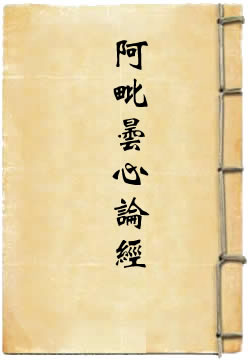 阿毗曇心論經